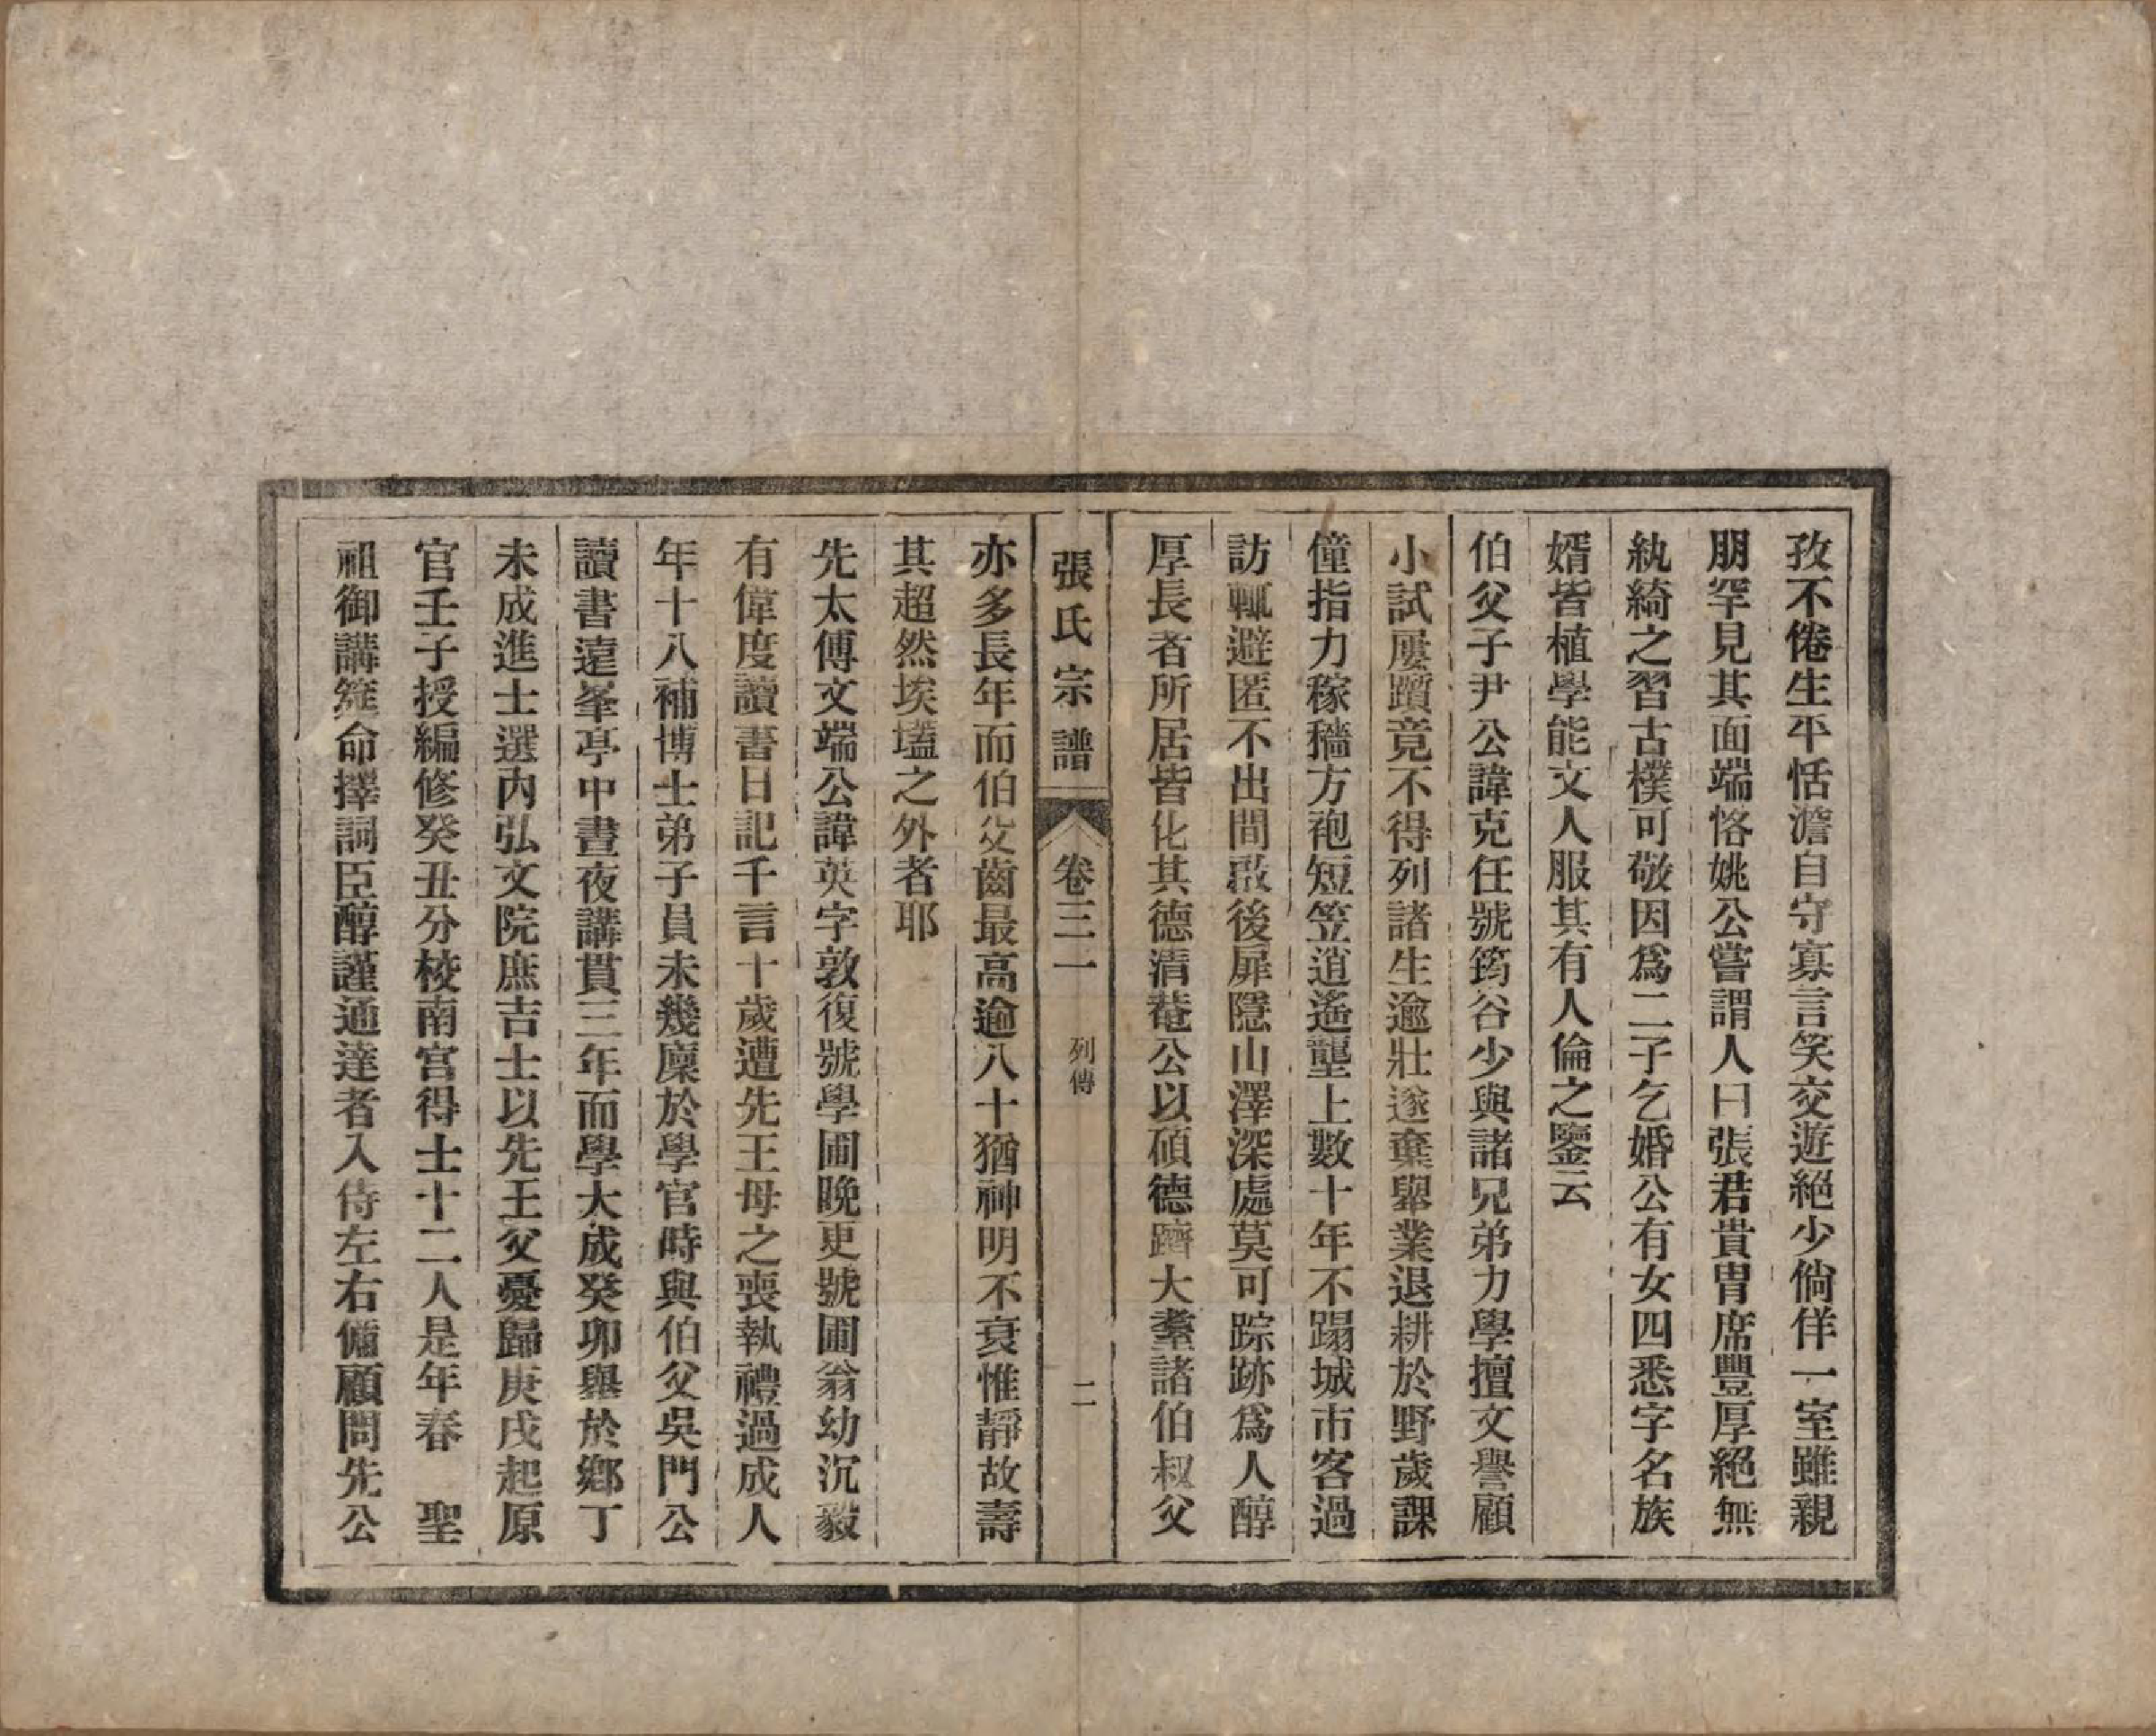 孜不倦生平恬澹自守寡言笑交遊絕少倘佯一室雖親
朋罕見其面端恪姚公嘗謂人曰張君貴胄席豐厚絕無
紈綺之習古樸可敬因爲二子乞婚公有女四悉字名族
婿皆植學能文人服其有人倫之鑒云
伯父子尹公諱克任號筠谷少與諸兄弟力學擅文譽顧
小試屢躓竟不得列諸生逾壯遂棄舉業退耕於野歲課
僮指力稼穡方袍短笠逍遙壟上數十年不蹋城市客過
訪輒避匿不出間啟後扉隱山澤深處莫可踪跡爲人醇
厚長者所居皆化其德清菴公以碩德躋大耋諸伯叔父
張氏宗譜 卷三一 列傳 二
亦多長年而伯父齒最高逾八十猶神明不衰惟靜故壽
其超然埃壒之外者耶
先太傅文端公諱英字敦復號學圃晚更號圃翁幼沉毅
有偉度讀書日記千言十歲遭先王母之喪執禮過成人
年十八補博士弟子員未幾廩於學官時與伯父吳門公
讀書遠峯亭中晝夜講貫三年而學大成癸卯舉於鄉丁
未成進士選內弘文院庶吉士以先王父憂歸庚戌起原
官壬子授編修癸丑分校南宮得士十二人是年春　聖
祖御講筵命擇詞臣醇謹通達者入侍左右備顧問先公